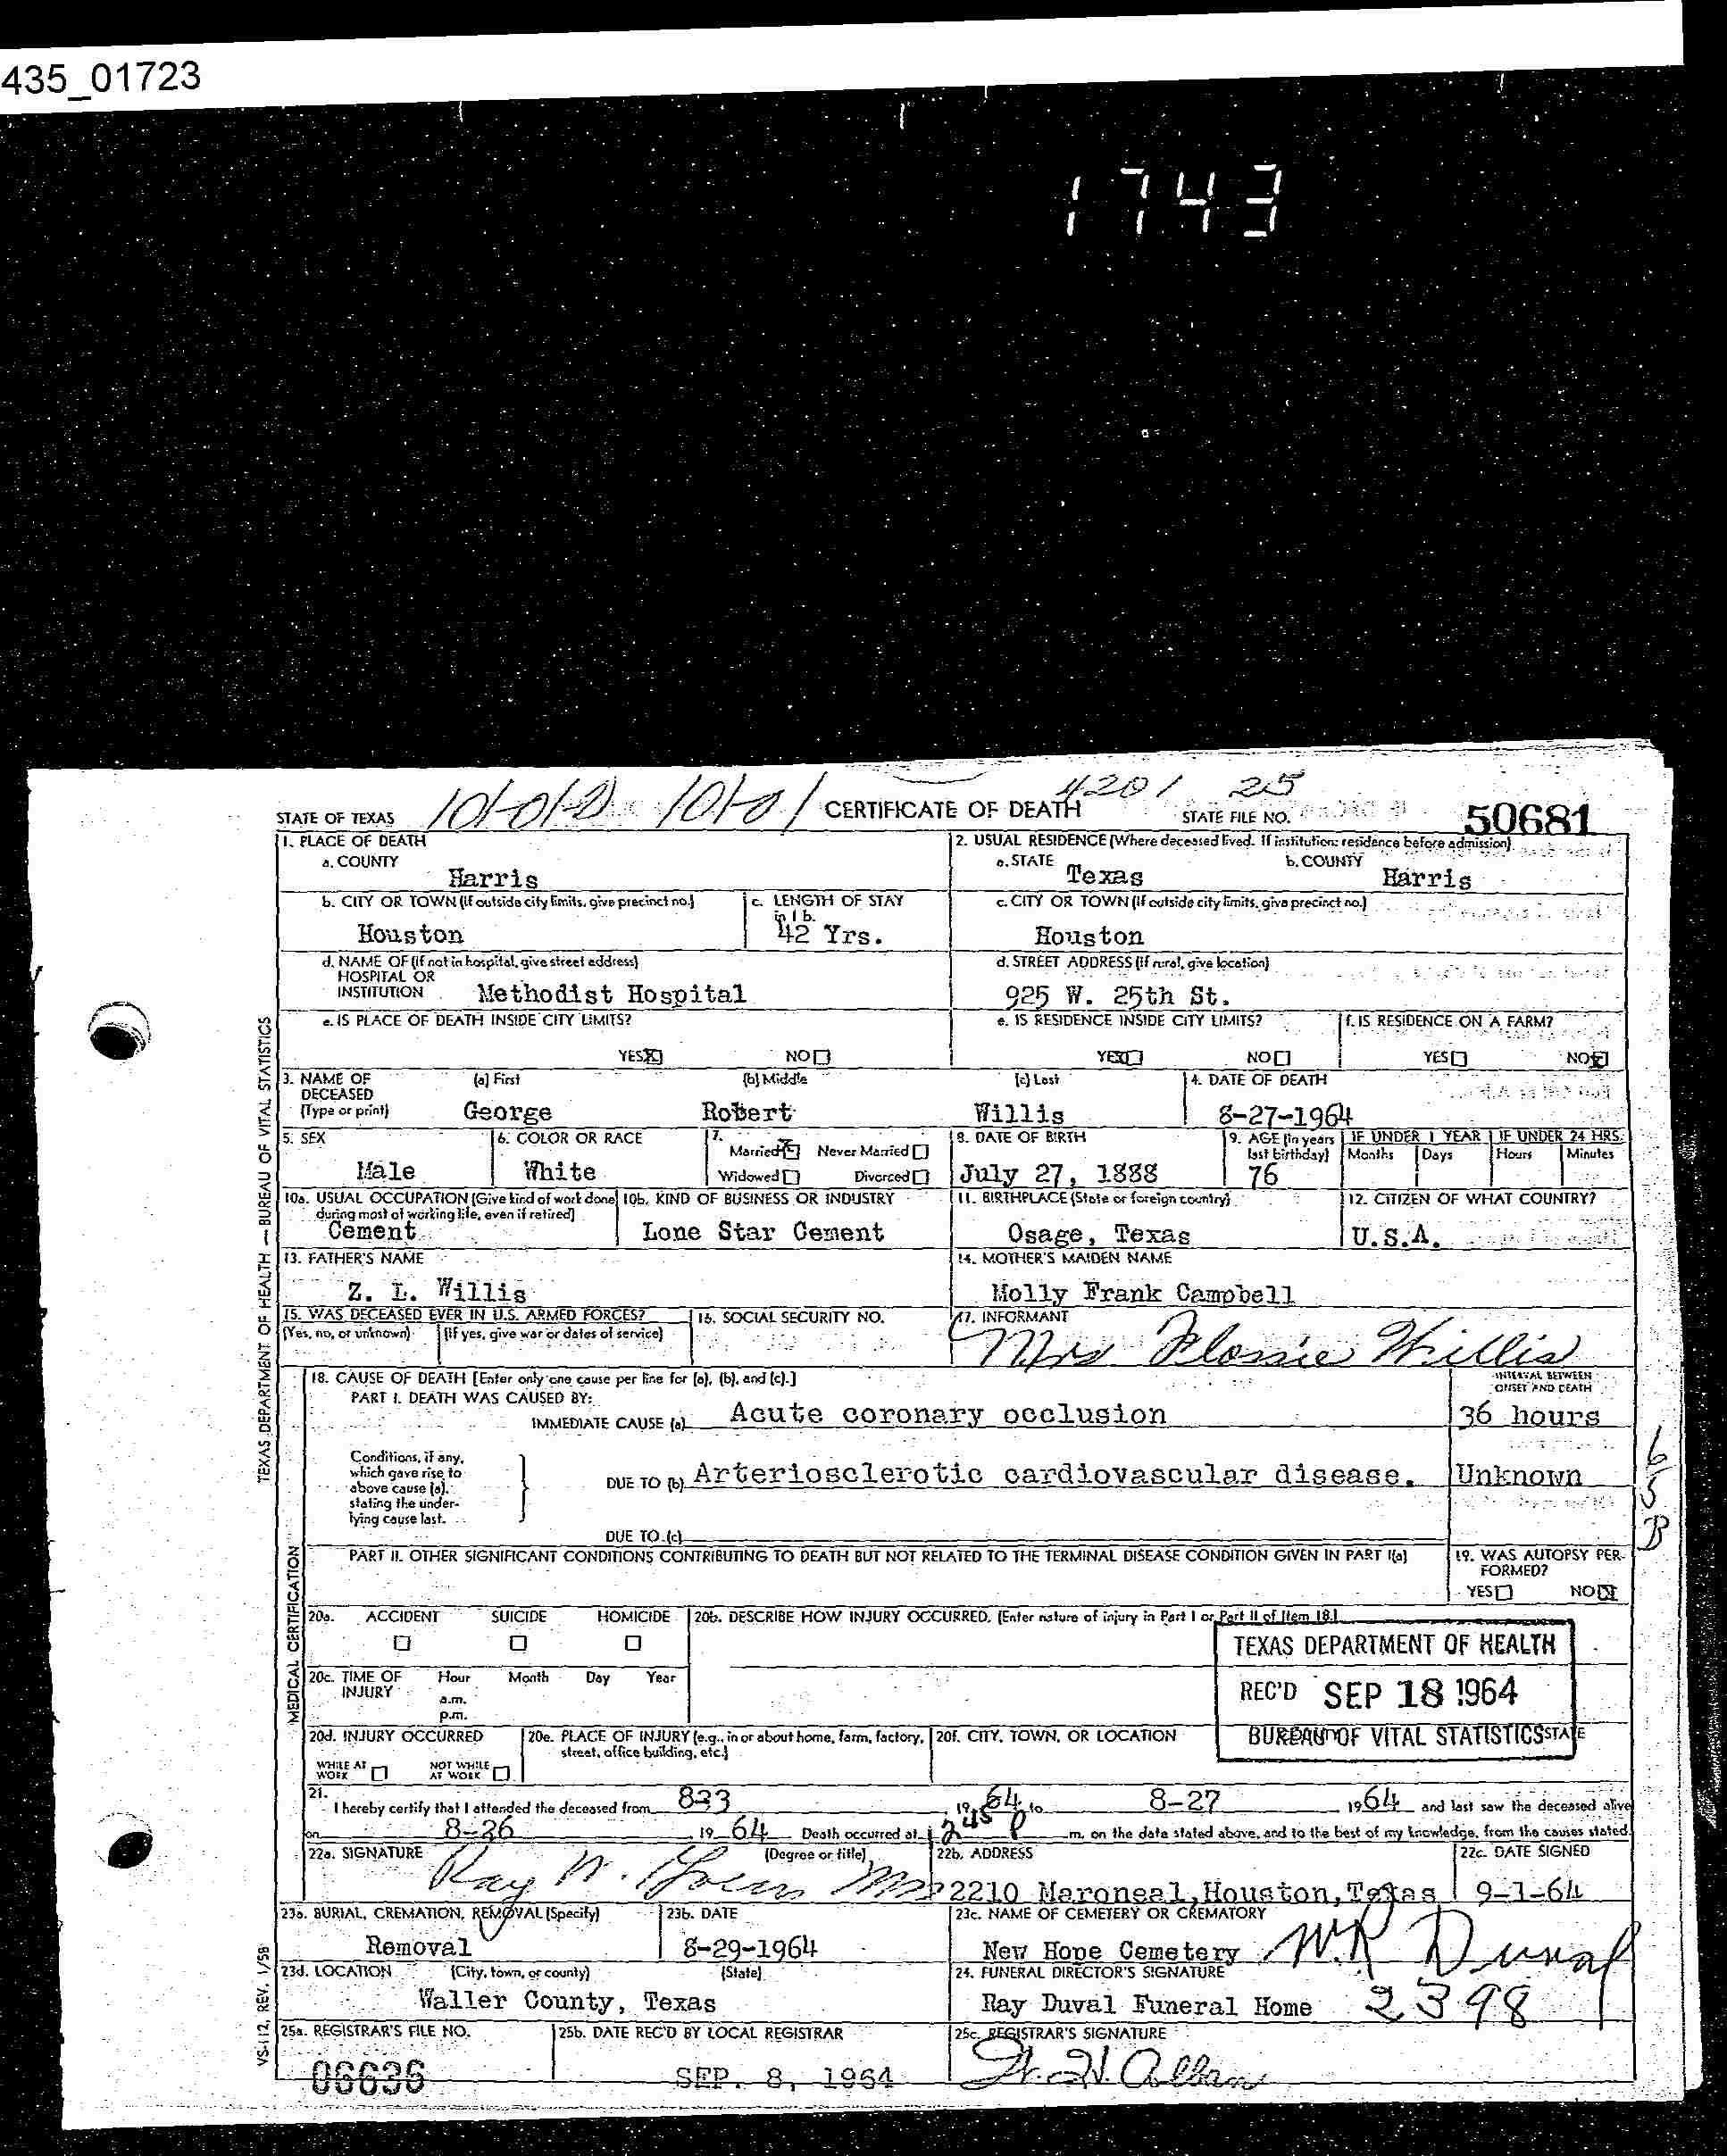 435_01723
1743
STATE OF TEXAS
CERTIFICATE OF DEATH
4201 25
STATE FILE NO. 50681
1. PLACE OF DEATH
a. COUNTY
Harris
2. USUAL RESIDENCE (Where deceased lived. If institution: residence before admission)
a. STATE
Texas
b. COUNTY
Harris
b. CITY OR TOWN (If outside city limits, give precinct no.)
Houston
c. LENGTH OF STAY
in 1 b.
42 Yrs.
c. CITY OR TOWN (If outside city limits, give precinct no.)
Houston
d. NAME OF (If not in hospital, give street address)
HOSPITAL OR
INSTITUTION
Methodist Hospital
d. STREET ADDRESS (If rural, give location)
925 W. 25th St.
e. IS PLACE OF DEATH INSIDE CITY LIMITS?
YES X NO
e. IS RESIDENCE INSIDE CITY LIMITS?
YES X NO
f. IS RESIDENCE ON A FARM?
YES NO X
3. NAME OF
DECEASED
(Type or print)
(a) First
George
(b) Middle
Robert
(c) Last
Willis
4. DATE OF DEATH
8-27-1964
5. SEX
Male
6. COLOR OR RACE
White
7.
Married X Never Married
Widowed Divorced
8. DATE OF BIRTH
July 27, 1888
9. AGE (In years
last birthday)
76
IF UNDER 1 YEAR
Months Days
IF UNDER 24 HRS.
Hours Minutes
10a. USUAL OCCUPATION (Give kind of work done
during most of working life, even if retired)
Cement
10b. KIND OF BUSINESS OR INDUSTRY
Lone Star Cement
11. BIRTHPLACE (State or foreign country)
Osage, Texas
12. CITIZEN OF WHAT COUNTRY?
U.S.A.
13. FATHER'S NAME
Z. L. Willis
14. MOTHER'S MAIDEN NAME
Molly Frank Campbell
15. WAS DECEASED EVER IN U.S. ARMED FORCES?
(Yes, no, or unknown) (If yes, give war or dates of service)
16. SOCIAL SECURITY NO.
17. INFORMANT
Mrs Flossie Willis
18. CAUSE OF DEATH [Enter only one cause per line for (a), (b), and (c).]
PART I. DEATH WAS CAUSED BY:
IMMEDIATE CAUSE (a) Acute coronary occlusion
INTERVAL BETWEEN
ONSET AND DEATH
36 hours
Conditions, if any,
which gave rise to
above cause (a),
stating the under-
lying cause last.
DUE TO (b) Arteriosclerotic cardiovascular disease.
Unknown
DUE TO (c)
65B
PART II. OTHER SIGNIFICANT CONDITIONS CONTRIBUTING TO DEATH BUT NOT RELATED TO THE TERMINAL DISEASE CONDITION GIVEN IN PART I(a)
19. WAS AUTOPSY PER-
FORMED?
YES NO X
20a. ACCIDENT SUICIDE HOMICIDE
20b. DESCRIBE HOW INJURY OCCURRED. (Enter nature of injury in Part I or Part II of Item 18.)
20c. TIME OF
INJURY
Hour Month Day Year
a.m.
p.m.
TEXAS DEPARTMENT OF HEALTH
REC'D SEP 18 1964
BUREAU OF VITAL STATISTICS
20d. INJURY OCCURRED
WHILE AT
WORK
NOT WHILE
AT WORK
20e. PLACE OF INJURY (e.g., in or about home, farm, factory,
street, office building, etc.)
20f. CITY, TOWN, OR LOCATION
STATE
21.
I hereby certify that I attended the deceased from 823 19 64 to 8-27 1964 and last saw the deceased alive
on 8-26 19 64 Death occurred at 245 P m. on the date stated above, and to the best of my knowledge, from the causes stated.
22a. SIGNATURE
(Degree or title)
Ray
22b. ADDRESS
2210 Maroneal, Houston, Texas
22c. DATE SIGNED
9-1-64
23a. BURIAL, CREMATION, REMOVAL (Specify)
Removal
23b. DATE
8-29-1964
23c. NAME OF CEMETERY OR CREMATORY
New Hope Cemetery
23d. LOCATION (City, town, or county) (State)
Waller County, Texas
24. FUNERAL DIRECTOR'S SIGNATURE
Ray Duval Funeral Home
W.R Duval
2398
25a. REGISTRAR'S FILE NO.
06636
25b. DATE REC'D BY LOCAL REGISTRAR
SEP. 8, 1964
25c. REGISTRAR'S SIGNATURE
TEXAS DEPARTMENT OF HEALTH — BUREAU OF VITAL STATISTICS
MEDICAL CERTIFICATION
VS-112, REV. 1/58